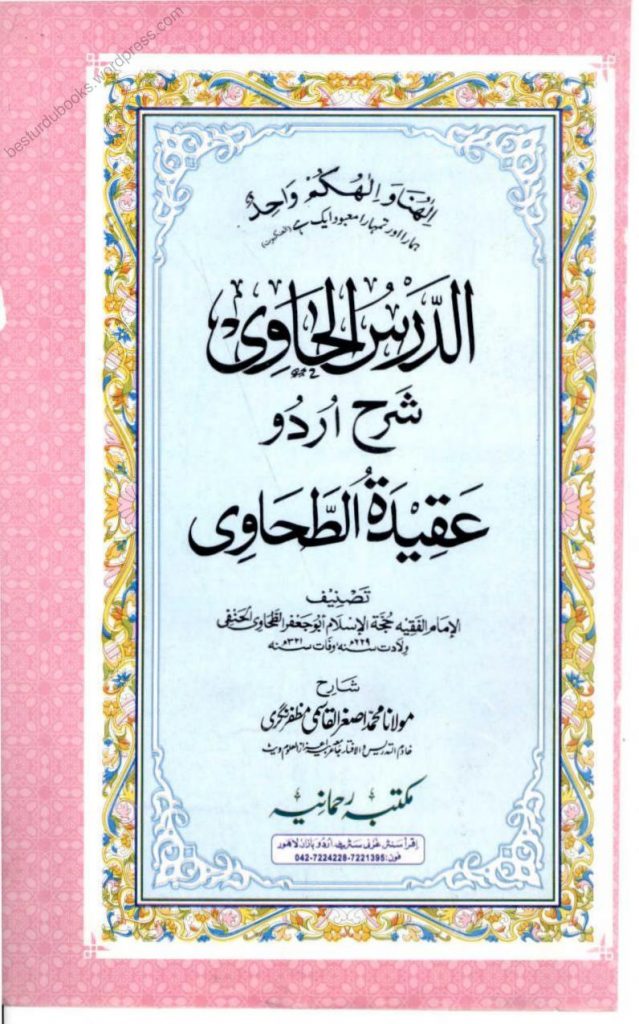 besturdubooks.wordpress.com
اِلٰهُنَا وَ اِلٰهُكُمْ وَاحِدٌ
ہمارا اور تمہارا معبود ایک ہے (العنکبوت)
الدَّرْسُ الحَاوِی
شرح اُردُو
عَقِيْدَةُ الطَّحَاوِی
تَصْنِيْف
الإمام الفقيه حُجّة الإسلام أبوجعفر الطحاوی الحنفی
ولادت سنہ ۲۲۹ھ وفات سنہ ۳۲۱ھ
شارح
مولانا محمد اصغر القاسمی مظفرنگری
خادم التدریس والافتاء
مکتبہ رحمانیہ
اِقرأ سنٹر غزنی سٹریٹ اردو بازار لاهور
فون: 042-7224228-7221395